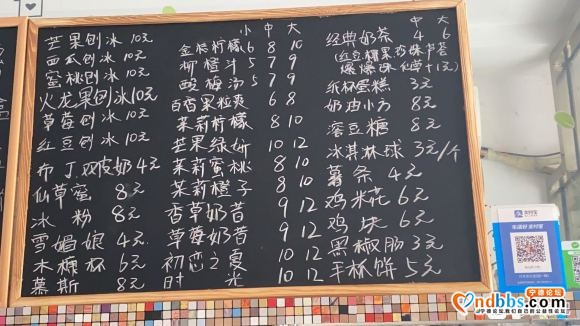 芒果刨冰 10元
西瓜刨冰 10元
蜜桃刨冰 10元
火龙果刨冰 10元
草莓刨冰 10元
红豆刨冰 10元
布丁双皮奶 4元
仙草蜜 8元
冰粉 8元
雪媚娘 4元
木糠杯 6元
慕斯 8元
小 中 大
金桔柠檬 6 8 10
柳橙汁 5 7 9
酸梅汤 5 7 9
百香果粒爽 6 8
茉莉柠檬 8 10
芒果绿妍 10 12
茉莉蜜桃 8 10
茉莉橙子 8 10
香草奶昔 9 12
草莓奶昔 9 12
初恋之夏 10 12
时光 10 12
中 大
经典奶茶 4 6
(红豆椰果珍珠芦荟
爆爆珠仙草+1元)
纸杯蛋糕 3元
奶油小方 8元
溶豆糖 8元
冰淇淋球 3元/个
薯条 4元
鸡米花 6元
鸡块 6元
黑椒肠 3元
手抓饼 5元
支付宝
宁德论坛
ndbbs.com
宁德论坛我们自己的公益性论坛